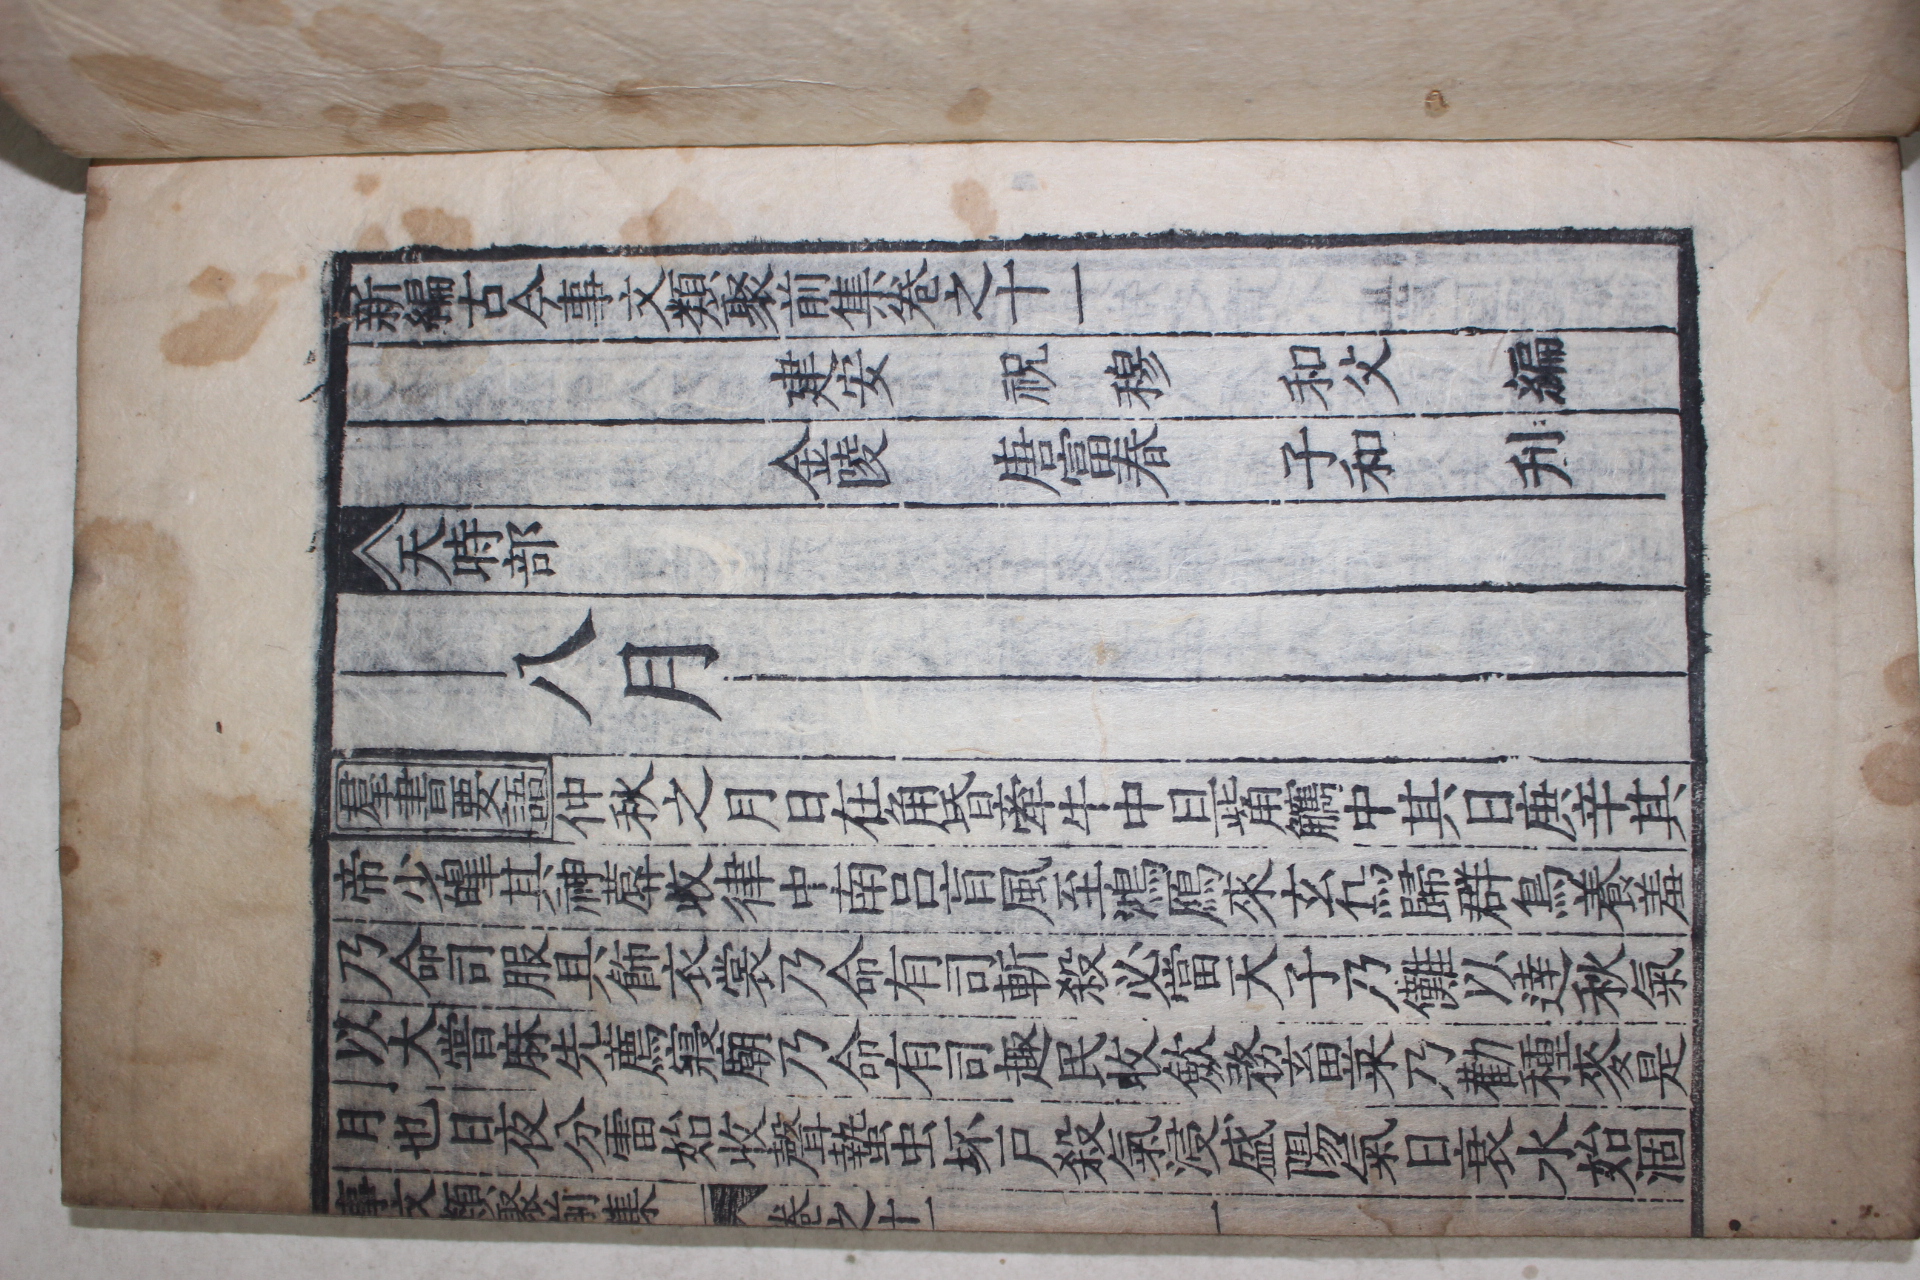 新編古今事文類聚前集卷之十一
建安 祝 穆 和父 編
金陵 唐富春 子和 刋
天時部
八月
羣書要語 仲秋之月日在角昏牽牛中旦觜觿中其日庚辛其
帝少皞其神蓐收律中南呂盲風至鴻鴈來玄鳥歸群鳥養羞
乃命司服具飾衣裳乃命有司斬殺必當天子乃儺以達秋氣
以犬嘗麻先薦寢廟乃命有司趣民收斂務畜菜乃勸種麥是
月也日夜分雷始收聲蟄虫坏戸殺氣浸盛陽氣日衰水始涸
事文類聚前集 卷之十一 一